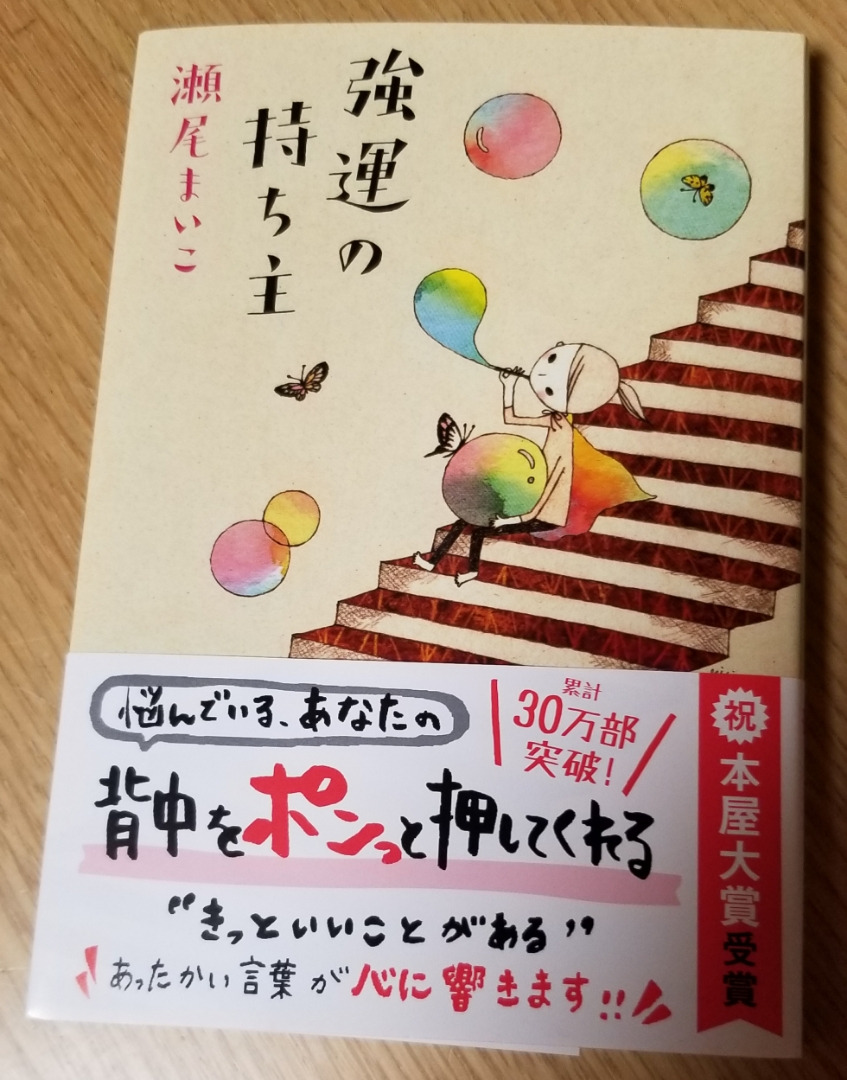 強運の
持ち主
瀬尾まいこ
悩んでいる、あなたの
累計
30万部
突破!
背中をポンっと押してくれる
"きっといいことがある"
あったかい言葉が心に響きます!!
祝
本屋大賞受賞